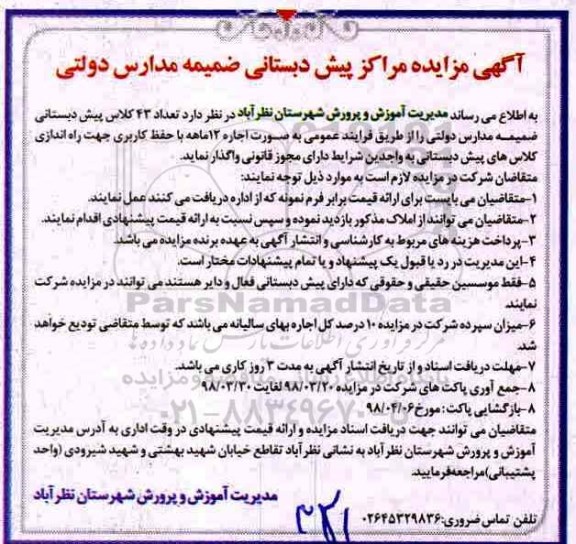 آگهی مزایده مراکز پیش دبستانی ضمیمه مدارس دولتی
به اطلاع می رساند مدیریت آموزش و پرورش شهرستان نظرآباد در نظر دارد تعداد ۴۳ کلاس پیش دبستانی
ضمیمه مدارس دولتی را از طریق فرایند عمومی به صورت اجاره ۱۲ماهه با حفظ کاربری جهت راه اندازی
کلاس های پیش دبستانی به واجدین شرایط دارای مجوز قانونی واگذار نماید.
متقاضان شرکت در مزایده لازم است به موارد ذیل توجه نمایند:
۱-متقاضیان می بایست برای ارائه قیمت برابر فرم نمونه که از اداره دریافت می کنند عمل نمایند.
۲-متقاضیان می توانند از املاک مذکور بازدید نموده و سپس نسبت به ارائه قیمت پیشنهادی اقدام نمایند.
۳-پرداخت هزینه های مربوط به کارشناسی و انتشار آگهی به عهده برنده مزایده می باشد.
۴-این مدیریت در رد یا قبول یک پیشنهاد و یا تمام پیشنهادات مختار است.
۵-فقط موسسین حقیقی و حقوقی که دارای پیش دبستانی فعال و دایر هستند می توانند در مزایده شرکت
نمایند.
ParsNamadData
۶-میزان سپرده شرکت در مزایده ۱۰ درصد کل اجاره بهای سالیانه می باشد که توسط متقاضی تودیع خواهد
شد.
مرکز فرآوری اطلاعات پارس نماد داده ها
۷-مهلت دریافت اسناد و از تاریخ انتشار آگهی به مدت ۳ روز کاری می باشد.
۸-جمع آوری پاکت های شرکت در مزایده ۹۸/۰۳/۲۰ لغایت ۹۸/۰۳/۳۰
۰۲۱-۸۸۳۴۹۶۷۰
۸-بازگشایی پاکت: مورخ۹۸/۰۴/۰۶
متقاضیان می توانند جهت دریافت اسناد مزایده و ارائه قیمت پیشنهادی در وقت اداری به آدرس مدیریت
آموزش و پرورش شهرستان نظرآباد به نشانی نظرآباد تقاطع خیابان شهید بهشتی و شهید شیرودی (واحد
پشتیبانی)مراجعه‌فرمایید.
مدیریت آموزش و پرورش شهرستان نظرآباد
تلفن تماس ضروری:۰۲۶۴۵۳۲۹۸۳۶